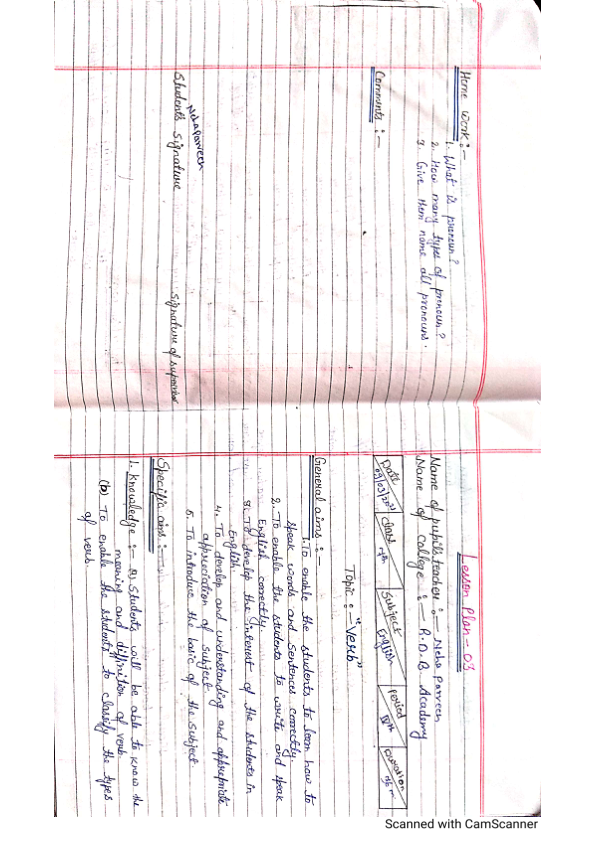 Home Work :-
1. What is pronoun?
2. How many types of pronoun?
3. Give them name all pronouns.
Comments :-
Neha Parveen
Students Signature
Signature of supervisor
Lesson Plan - 03
Name of pupil teacher :- Neha Parveen
Name of College :- R.D.B Academy
Date
Class
Subject
Period
Duration
English
Topic :- "Verb"
General aims :-
1. To enable the students to learn how to
speak words and sentences correctly.
2. To enable the students to write and speak
English correctly.
3. To develop the interest of the students in
English
4. To develop and understanding and appropriate
appreciation of subject.
5. To introduce the basic of the subject.
Specific aims :-
1. Knowledge :- a) Students will be able to know the
meaning and diffinition of verb.
(b) To enable the students to classify the types
of verb.
Scanned with CamScanner